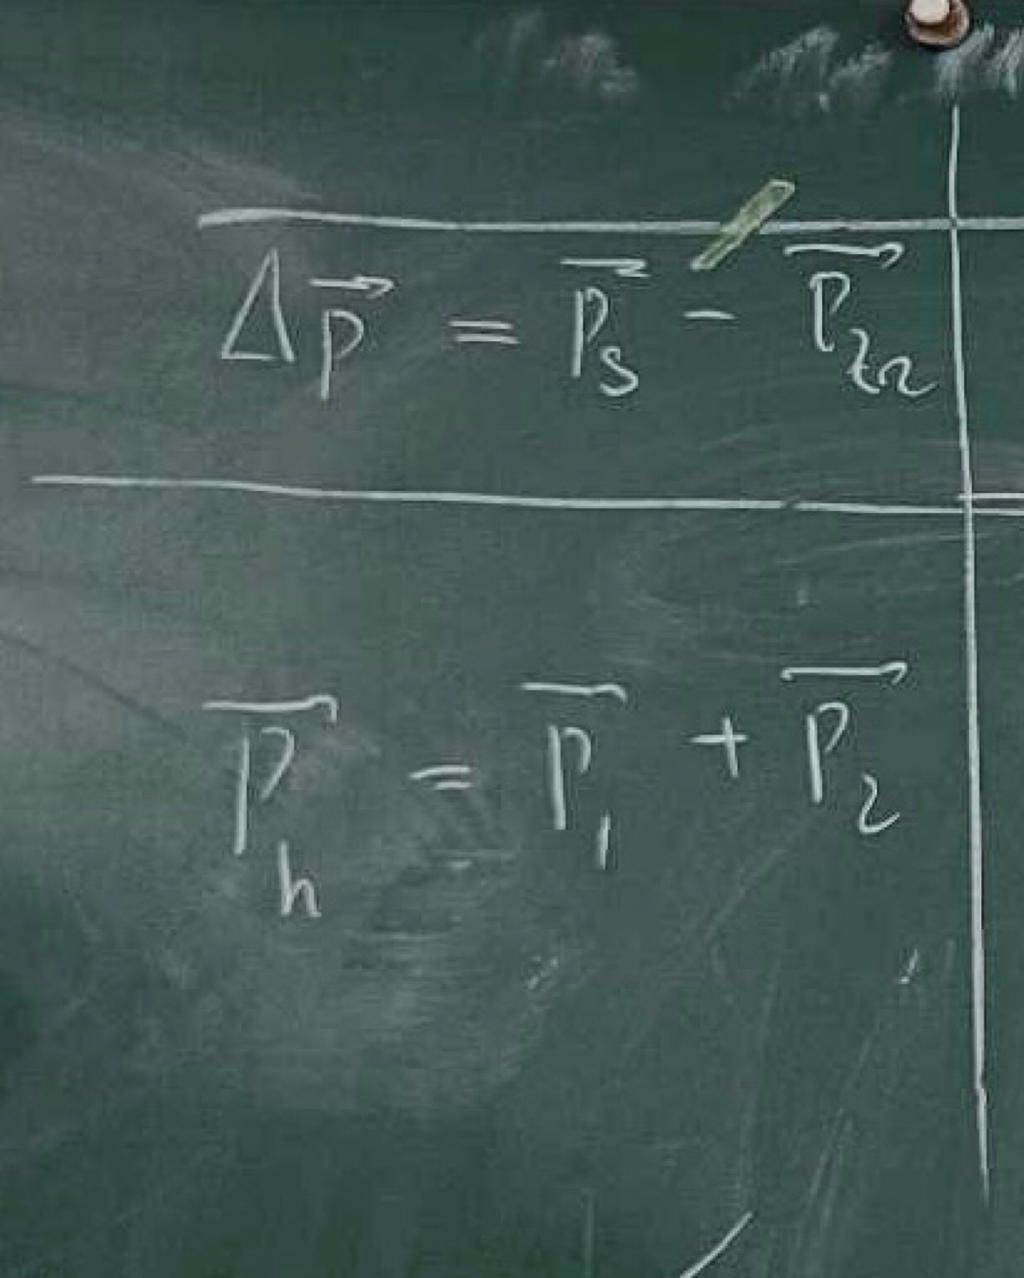 Δp⃗ = p⃗ₛ - p⃗₂₂
p⃗ₕ = p⃗₁ + p⃗₂